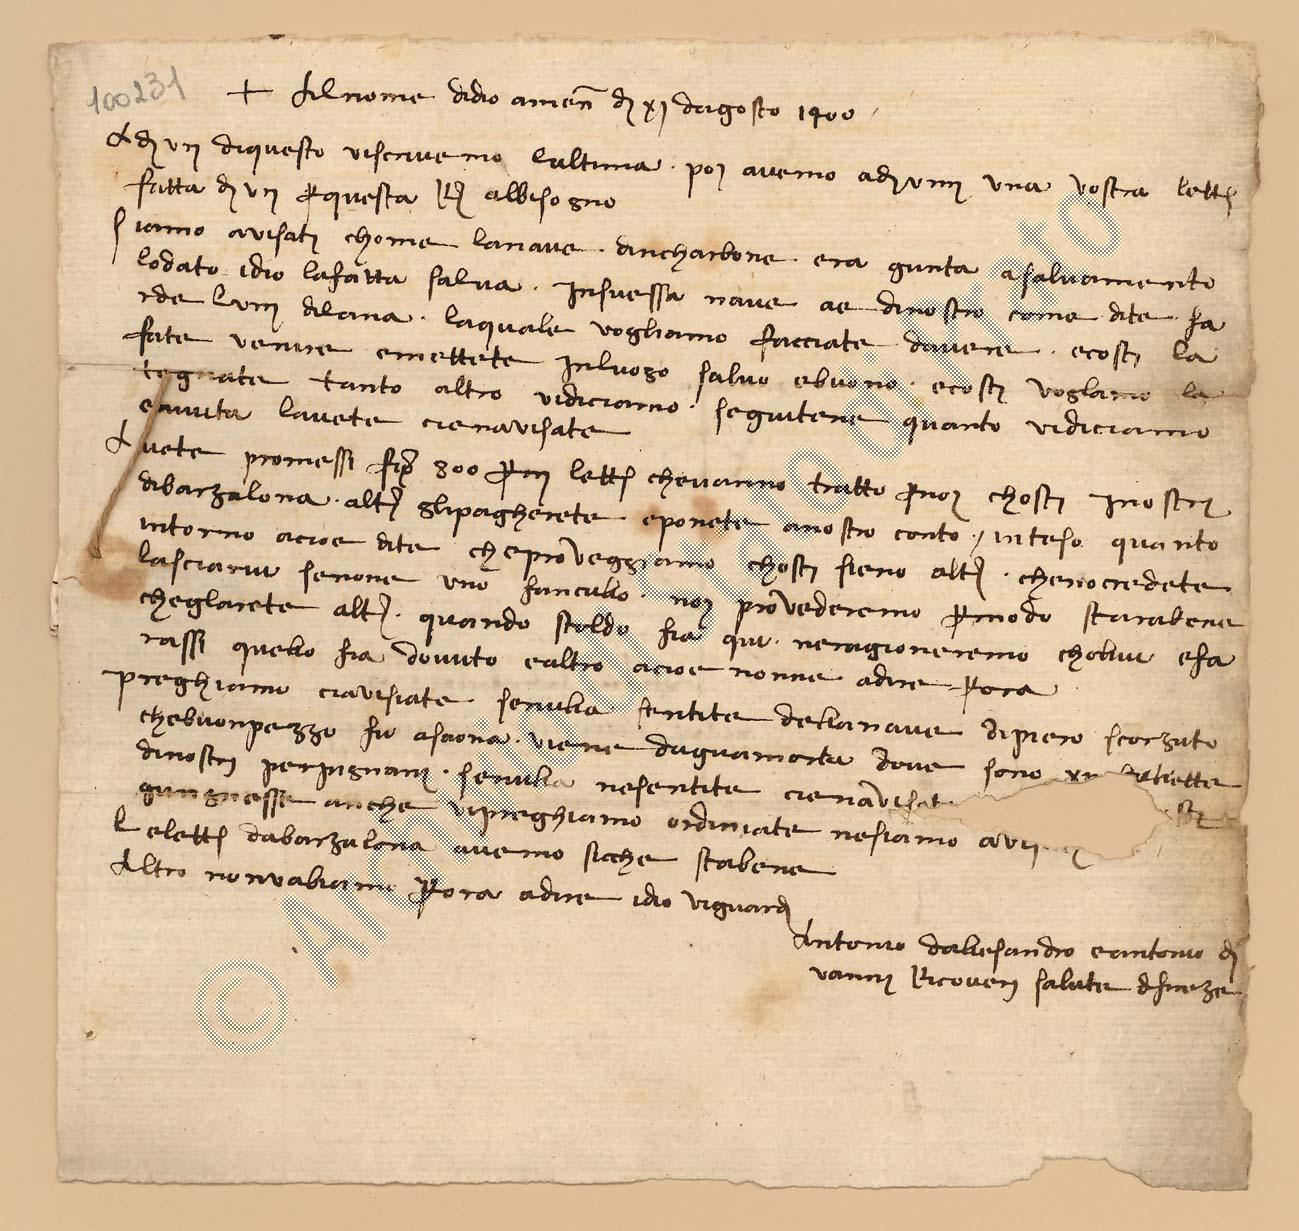 100231
+ Al nome didio amen dj xj dagosto 1400
Adj vij diquesto viscrivemo lultima · poi avemo adj viiij una vostra lettª
fatta dj vij p questa Rj albisogno
Siamo avisati chome lanave dincharbone era gunta asalvamento
lodato idio lafatta salva · Insuessa nave ae dinostro come dite
lviij dilana · laquale vogliamo facciate davere · ecosti la
fate venire emettete Inluogo salvo ebuono · ecosti voglamo la
tegnate tanto altro vidiciamo · seguitene quanto vidiciamo
eavuta lavete cienavisate
Avete promessi fp 800 p lettª chevanno tratto pnoi chosti Inostri
dibarzalona · altj glipagherete eponete anostro conto / inteso quanto
intorno acioe dite cheproveggiamo chosti sieno altj · chenocredete
lasciarvi senone uno fanciullo · noi provederemo pmodo starabene
cheglarete altj · quando stoldo fia qui · neragioneremo chollui efa
rassi quello fia dovuto ealtro acioe nonne adire pora
preghiamo ciavisiate senulla sentite dellanave dipiero scorzuto
chebuonpezzo fu asaona · viene daguamorta dove sono
dinostri perpignani · senulla nesentite cienavisat
gungnesse anche vipreghiamo ordiniate nesiamo avi
Lelettª dabarzalona avemo sicche stabene
Altro nonvabiamo pora adire idio viguardi
Antonio dallesandro eantonio dj
vannij Ricoveri salute dfireze
© Archivio di Stato di Prato